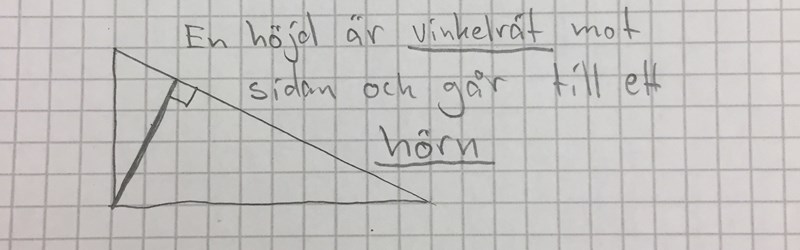 En höjd är vinkelrät mot
sidan och går till ett
hörn